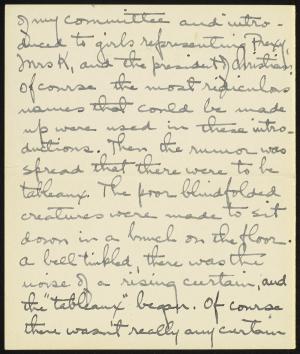 of my committee and intro-
duced to girls representing Prexy,
Mrs K, and the president of Christian.
Of course the most ridiculous
names that could be made
up were used in these intro-
ductions. Then the rumor was
spread that there were to be
tableaux. The poor blindfolded
creatures were made to sit
down in a bunch on the floor.
A bell tinkled, there was the
noise of a rising curtain, and
the "tableaux" began. Of course
there wasn't really any curtain